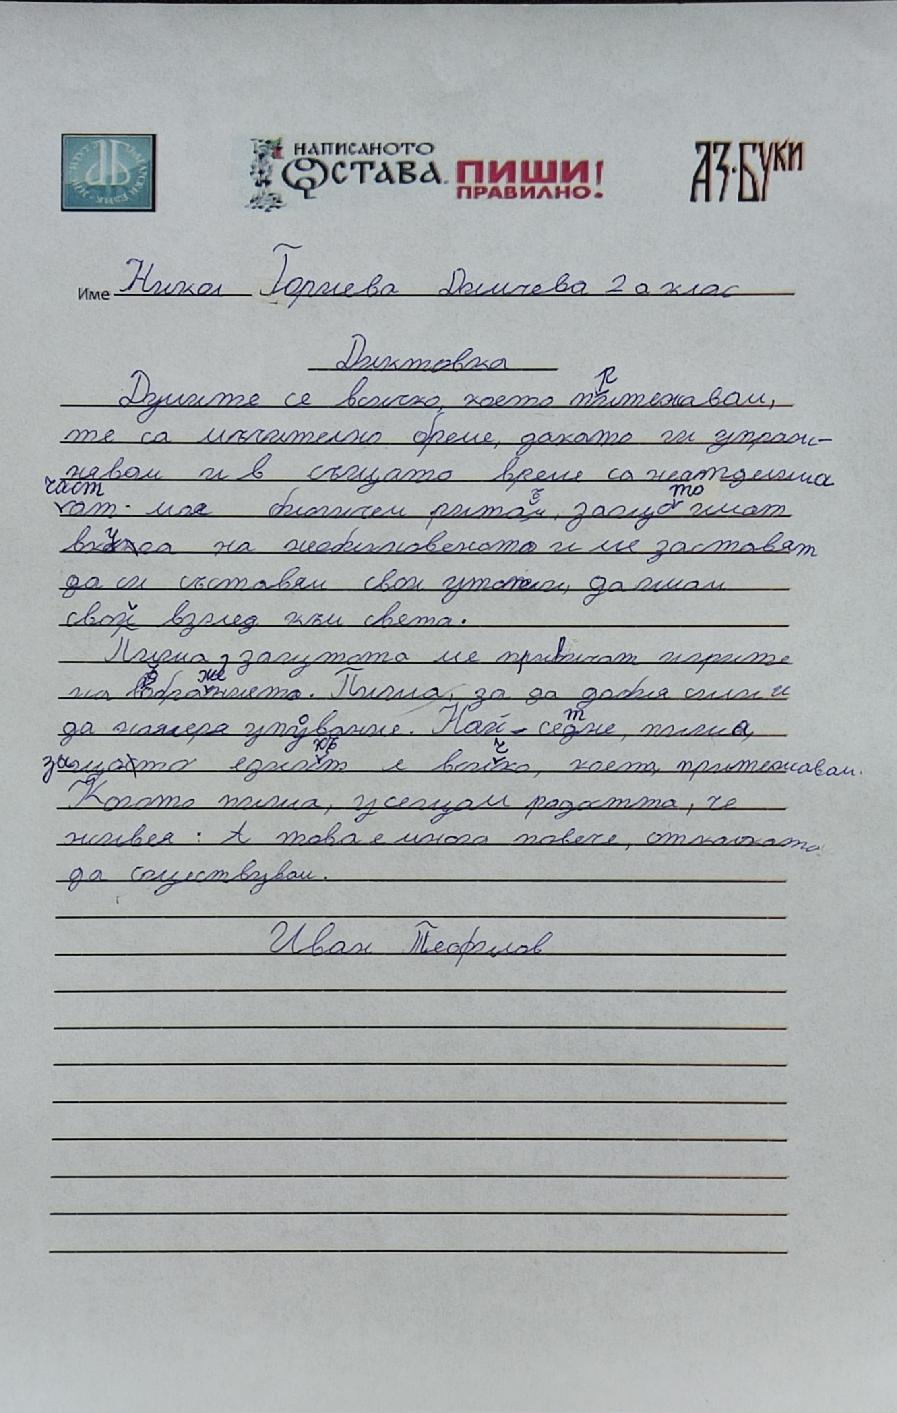 НАПИСАНОТО ОСТАВА. ПИШИ ПРАВИЛНО!
АЗ·БУКИ
Име Никол Димчева 2 а клас
Диктовка
Думите са всичко, което притежавам,
те са мъчително бреме, докато ги упраж-
нявам и в същото време са неотделима
част от моя биологичен ритъм, защото имат
вкуса на необикновеното и ме заставят
да си съставям свои утопии, да имам
свой взглед към света.
Пиша, защото ме привичат игрите
на въображението. Пиша, за да добия сили и
да намеря упование. Най-сетне, пиша,
защото езикът е всичко, което притежавам.
Когато пиша, усещам радостта, че
живея. А това е много повече, отколкото
да съществувам.
Иван Теофилов